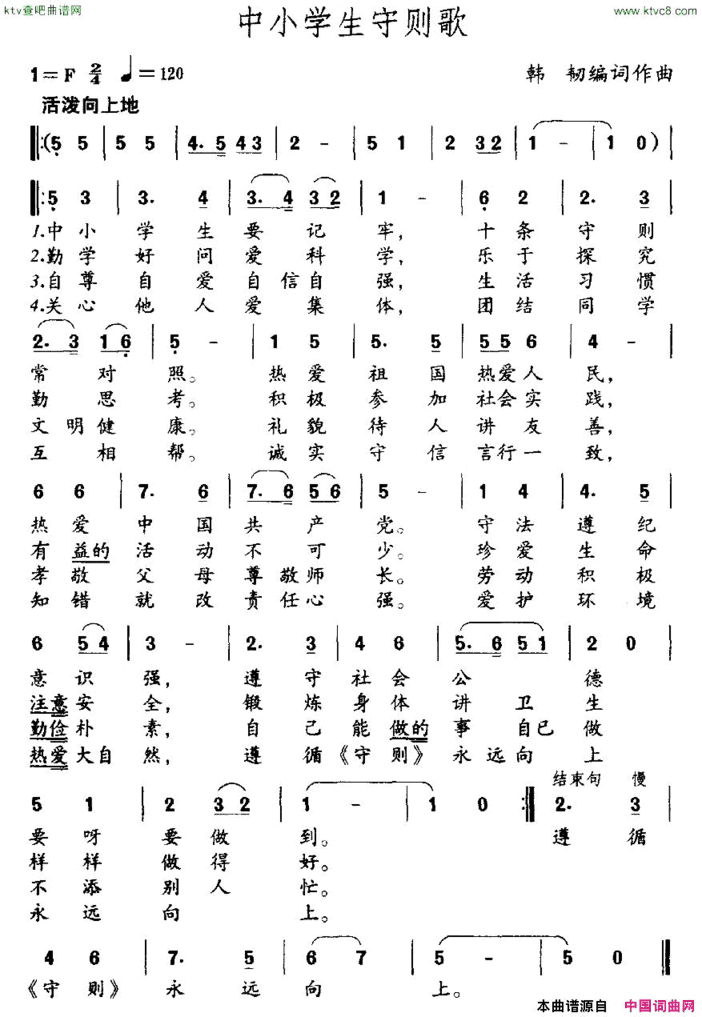 ktv查吧曲谱网
www.ktvc8.com
中小学生守则歌
1=F 2/4 ♩=120
韩 韧编词作曲
活泼向上地
‖:(5 5 | 5 5 | 4. 5 4 3 | 2 - | 5 1 | 2 3 2 | 1 - | 1 0 ) |
‖: 5 3 | 3. 4 | 3. 4 3 2 | 1 - | 6 2 | 2. 3 |
1.中小学生要记牢，十条守则
2.勤学好问爱科学，乐于探究
3.自尊自爱自信自强，生活习惯
4.关心他人爱集体，团结同学
2. 3 1 6 | 5 - | 1 5 | 5. 5 | 5 5 6 | 4 - |
常对照。热爱祖国热爱人民，
勤思考。积极参加社会实践，
文明健康。礼貌待人讲友善，
互相帮。诚实守信言行一致，
6 6 | 7. 6 | 7. 6 5 6 | 5 - | 1 4 | 4. 5 |
热爱中国共产党。守法遵纪
有益的活动不可少。珍爱生命
孝敬父母尊敬师长。劳动积极
知错就改责任心强。爱护环境
6 5 4 | 3 - | 2. 3 | 4 6 | 5. 6 5 1 | 2 0 |
意识强，遵守社会公德
注意安全，锻炼身体讲卫生
勤俭朴素，自己能做的事自己做
热爱大自然，遵循《守则》永远向上
结束句 慢
5 1 | 2 3 2 | 1 - | 1 0 :‖ 2. 3 |
要呀要做到。遵循
样样做得好。
不添别人忙。
永远向上。
4 6 | 7. 5 | 6 7 | 5 - | 5 - | 5 0 ‖
《守则》永远向上。
本曲谱源自 中国词曲网